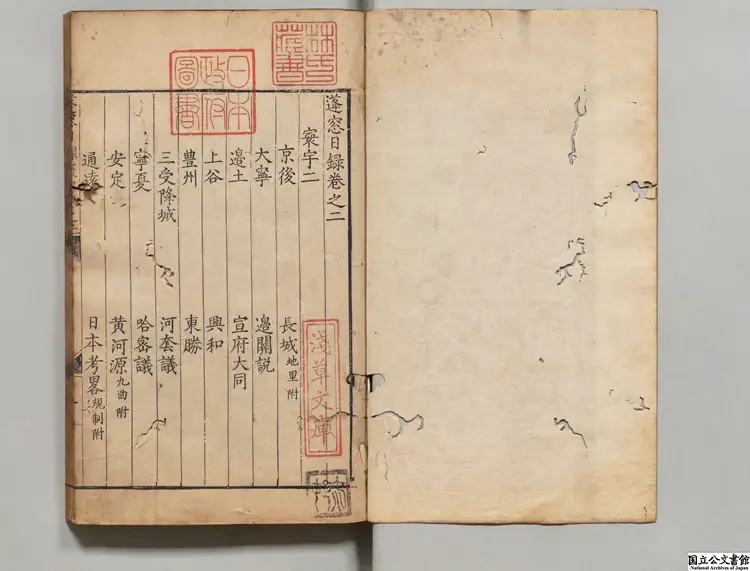 蓬窓日録巻之二
寰宇二
京後　長城地里附
大寧　邉關説
邉土　宣府大同
上谷　興和
豊州　東勝
三受降城　河套議
寧夏　哈密議
安定　黄河源九曲附
通遠　日本考畧規制附
林氏藏書
日本政府圖書
淺草文庫
国立公文書館
National Archives of Japan